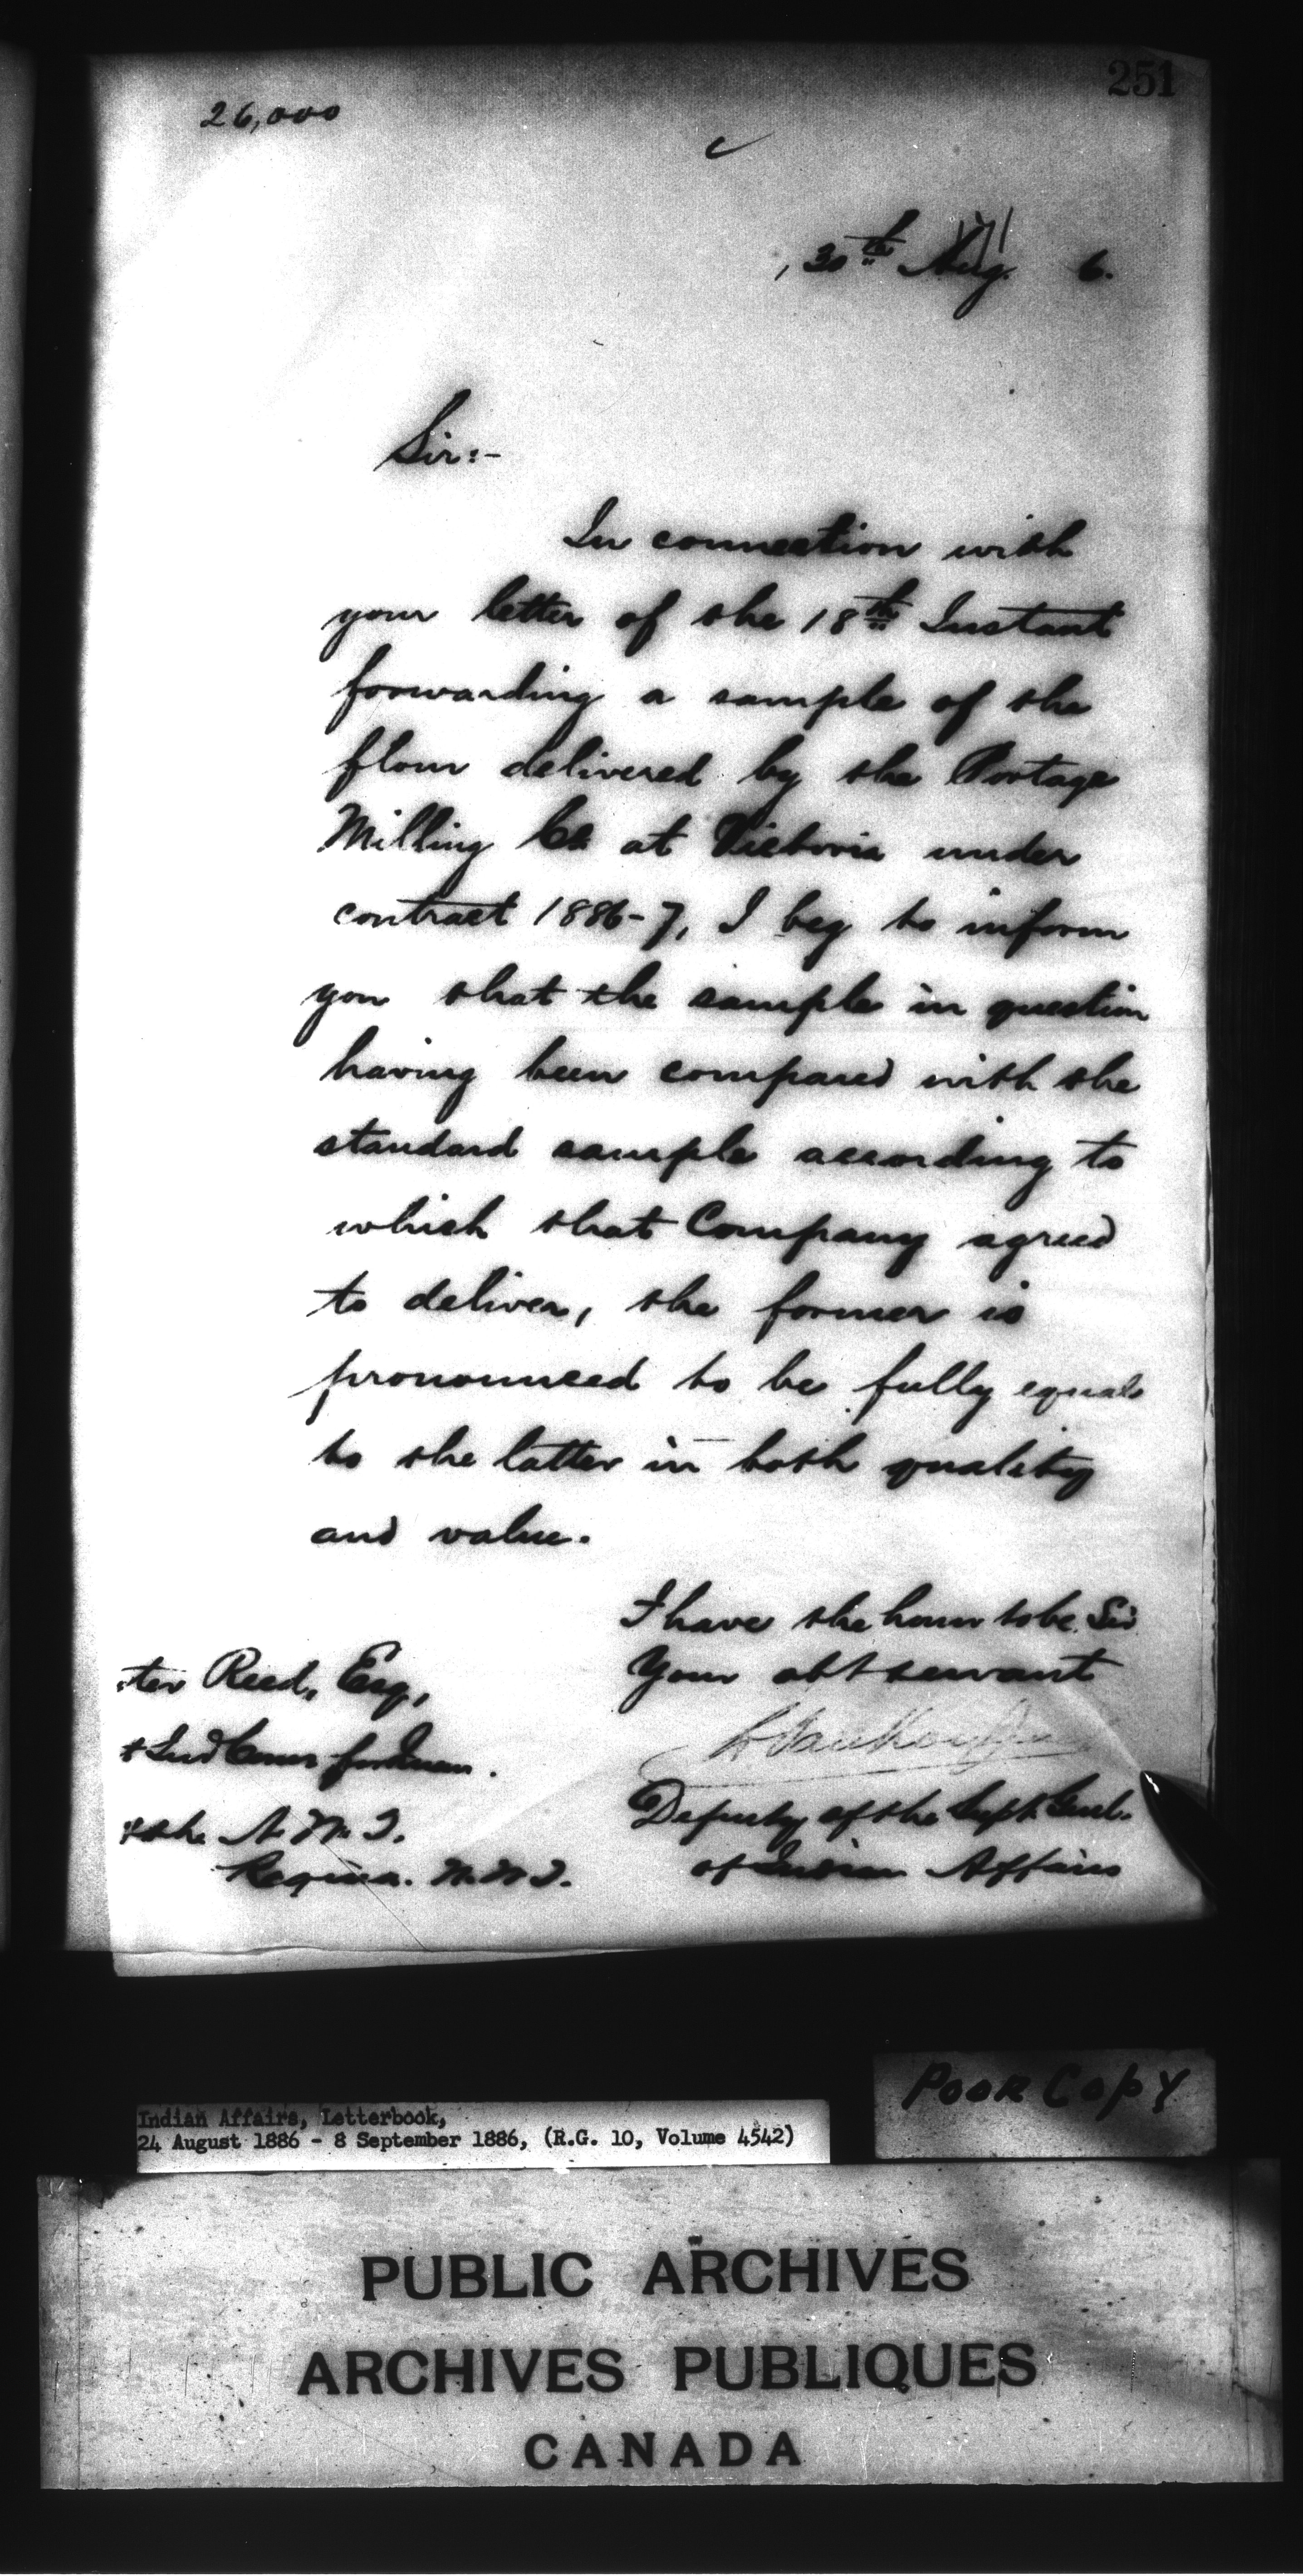 251
26,000
30th Aug. 6.
Sir:-
In connection with
your letter of the 18th Instant
forwarding a sample of the
flour delivered by the Portage
Milling Co. at Victoria under
contract 1886-7, I beg to inform
you that the sample in question
having been compared with the
standard sample according to
which that Company agreed
to deliver, the former is
pronounced to be fully equal
to the latter in both quality
and value.
I have the honor to be Sir
Your obt servant
L Vankoughnet
Deputy of the Supt. Genl.
of Indian Affairs
ter Reed, Esq,
t Ind Comr
the N.W.T.
Regina. N.W.T.
POOR COPY
Indian Affairs, Letterbook,
24 August 1886 - 8 September 1886, (R.G. 10, Volume 4542)
PUBLIC ARCHIVES
ARCHIVES PUBLIQUES
CANADA